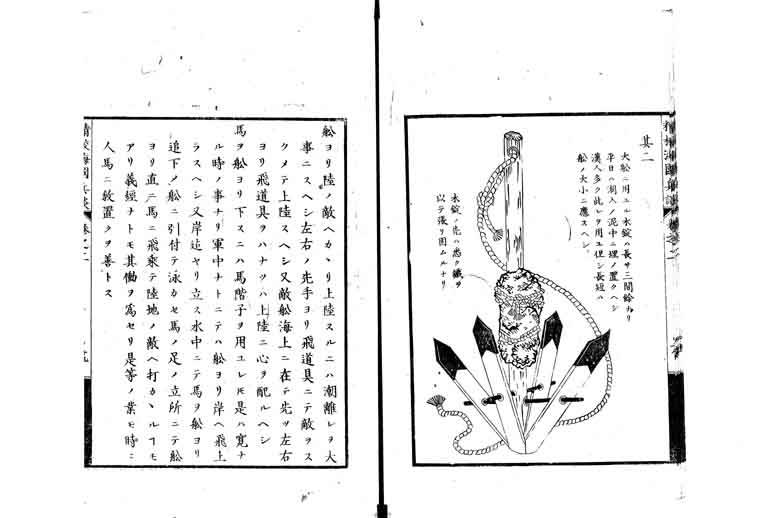 其二
大舩ニ用ユル木錠ハ長サ三間餘カリ
平日ハ潮入ノ泥中ニ埋ノ置クヘシ
漢人多ク此レヲ用ユ但シ長短ハ
舩ノ大小ニ應スヘシ
木錠ノ先ハ悉ク鐵ヲ
以テ張リ固ムルナリ
舩ヨリ陸ノ敵ヘカヽリ上陸スルニハ潮離レヲ大
事ニスヘシ左右ノ先手ヨリ飛道具ニテ敵ヲス
クメテ上陸スヘシ又敵舩海上ニ在テ先ツ左右
ヨリ飛道具ヲハナツハ上陸ニ心ヲ配ルヘシ
馬ヲ舩ヨリ下スニハ馬階子ヲ用ユレ𪜈是ハ寛ナ
ル時ノ事ナリ軍中ナトニテハ舩ヨリ岸ヘ飛上
ラスヘシ又岸近ヤリ立ス水中ニテ馬ヲ舩ヨリ
追下メ舩ニ引付テ泳カセ馬ノ足ノ立所ニテ舩
ヨリ直ニ馬ニ飛乘テ陸地ノ敵ヘ打カヽルヿモ
アリ義經ナトモ其働ヲ爲セリ是等ノ業モ時ニ
人馬ニ敎置クヲ善トス
精校海國兵談 卷之二